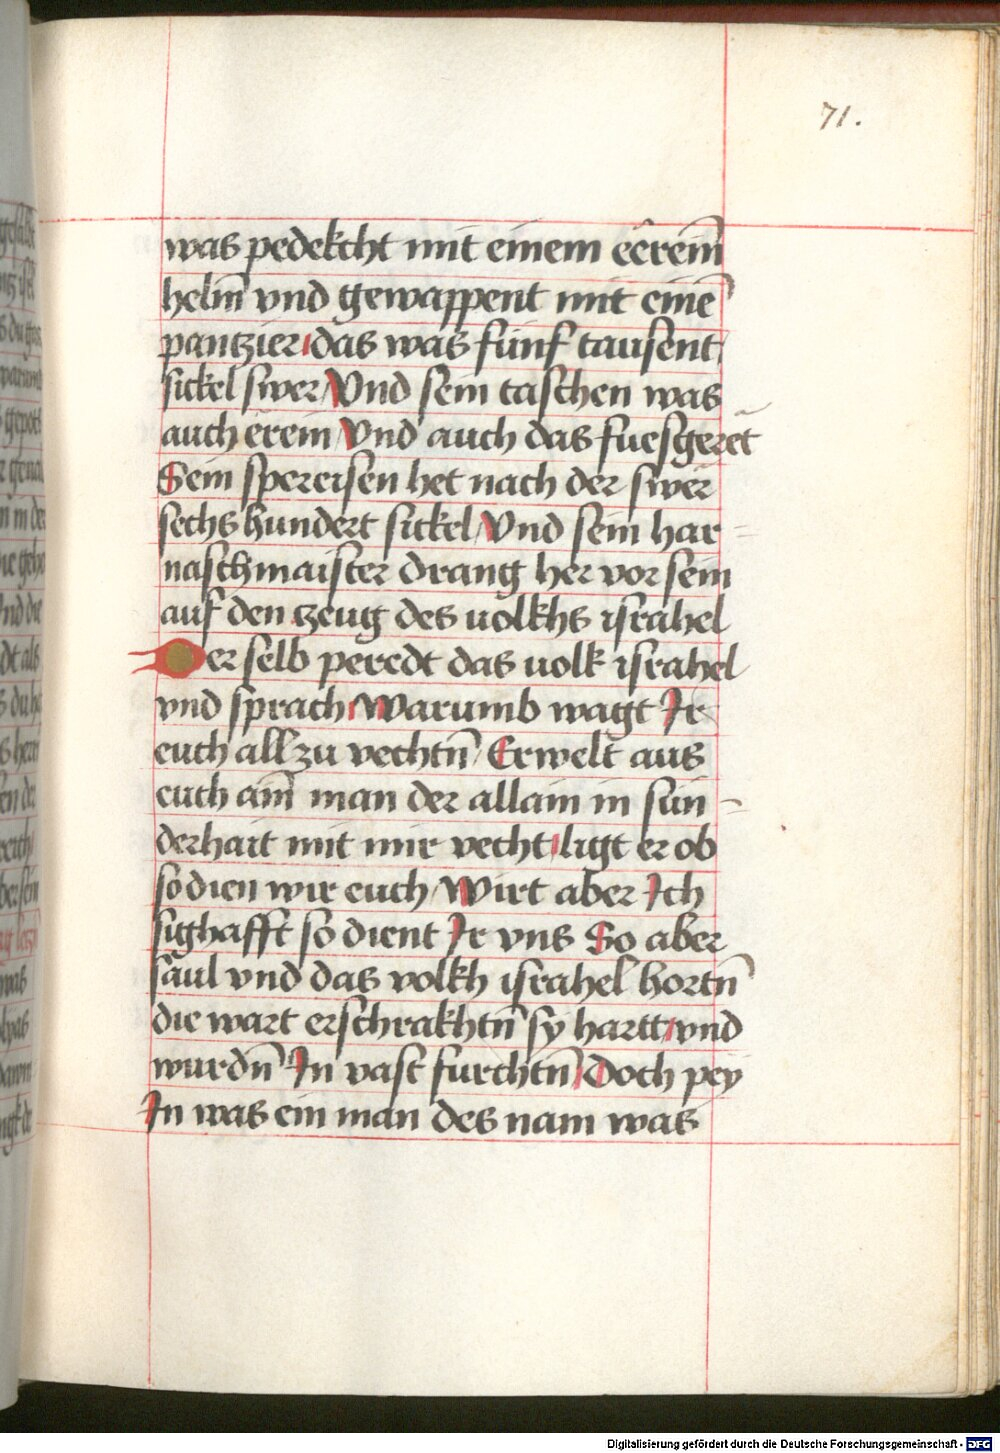 71.
was pedekcht mit einem eêrein̄
helm̄ vnd gewappent mit einē
pantzier das was fünf tausent
sickel swer / Vnd sein taschen was
auch erein / Vnd auch das fuesgeret
Sein spereisen het nach der swer
sechs hundert sickel / Vnd sein har=
naschmaister drang her vor sein
auf den zeug des uolkhs israhel
Der selb peredt das uolk israhel
vnd sprach Warumb wagt Ir
euch all zu vechtn̄ / Erwelt aus
euch ain̄ man der allain in sün=
derhait mit mir vecht ligt er ob
so dien wir euch / Wirt aber Ich
sighafft so dient Ir vns So aber
saul vnd das volkh israhel hortn̄
die wart erschrakhtn̄ sy hartt / vnd
wurdn̄ In vast furchtn̄ / Doch pey
In was ein man des nam was
Digitalisierung gefördert durch die Deutsche Forschungsgemeinschaft - DFG